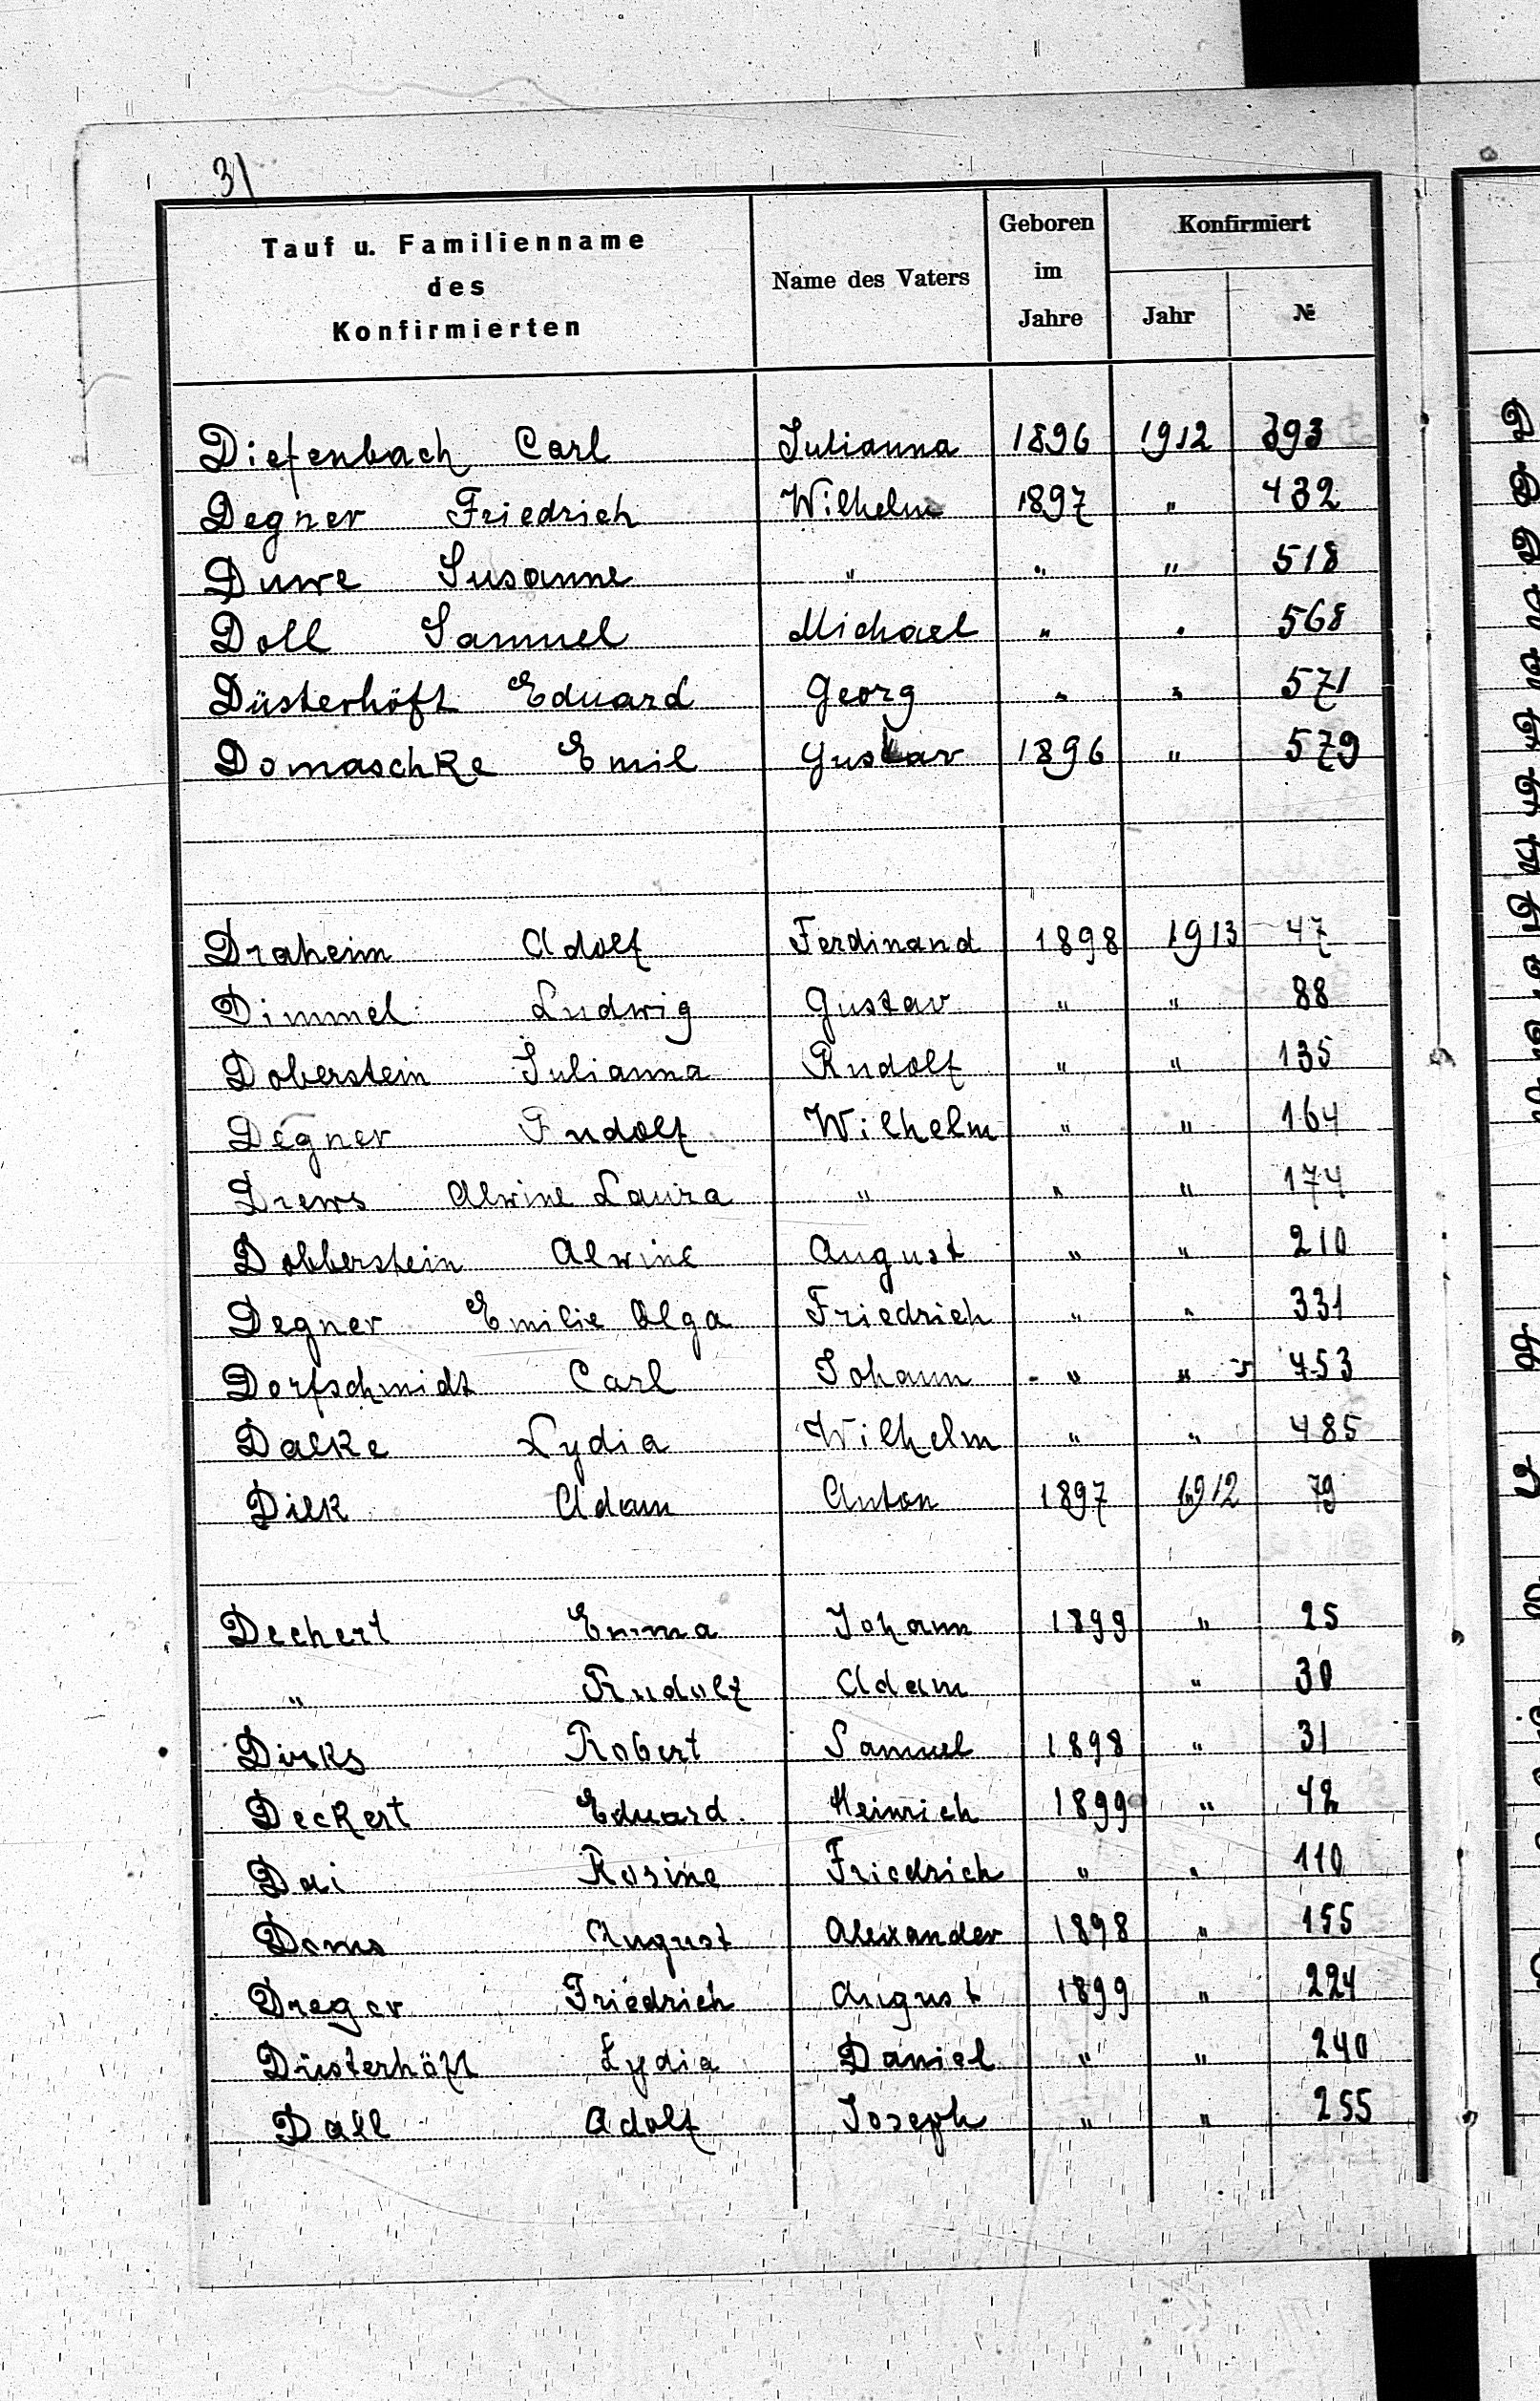 31
Tauf u. Familienname
des
Konfirmierten
Name des Vaters
Geboren
im
Jahre
Konfirmiert
Jahr
№
Diefenbach Carl Julianna 1896 1912 393
Degner Friedrich Wilhelm 1897 " 432
Duwe Susanne " " " 518
Doll Samuel Michael " " 568
Düsterhöft Eduard Georg " " 571
Domaschke Emil Gustav 1896 " 579
Draheim Adolf Ferdinand 1898 1913 47
Dimmel Ludwig Gustav " " 88
Doberstein Julianna Rudolf " " 135
Degner Rudolf Wilhelm " " 164
Drews Alwine Laura " " " 174
Dobberstein Alwine August " " 210
Degner Emilie Olga Friedrich " " 331
Dorfschmidt Carl Johann " " 453
Dalke Lydia Wilhelm " " 485
Dilk Adam Anton 1897 1912 79
Dechert Emma Johann 1899 " 25
" Rudolf Adam " 30
Dirks Robert Samuel 1898 " 31
Deckert Eduard Heinrich 1899 " 42
Dai Rosine Friedrich " " 110
Doms August Alexander 1898 " 155
Dreger Friedrich August 1899 " 224
Düsterhöft Lydia Daniel " " 240
Dall Adolf Joseph " " 255